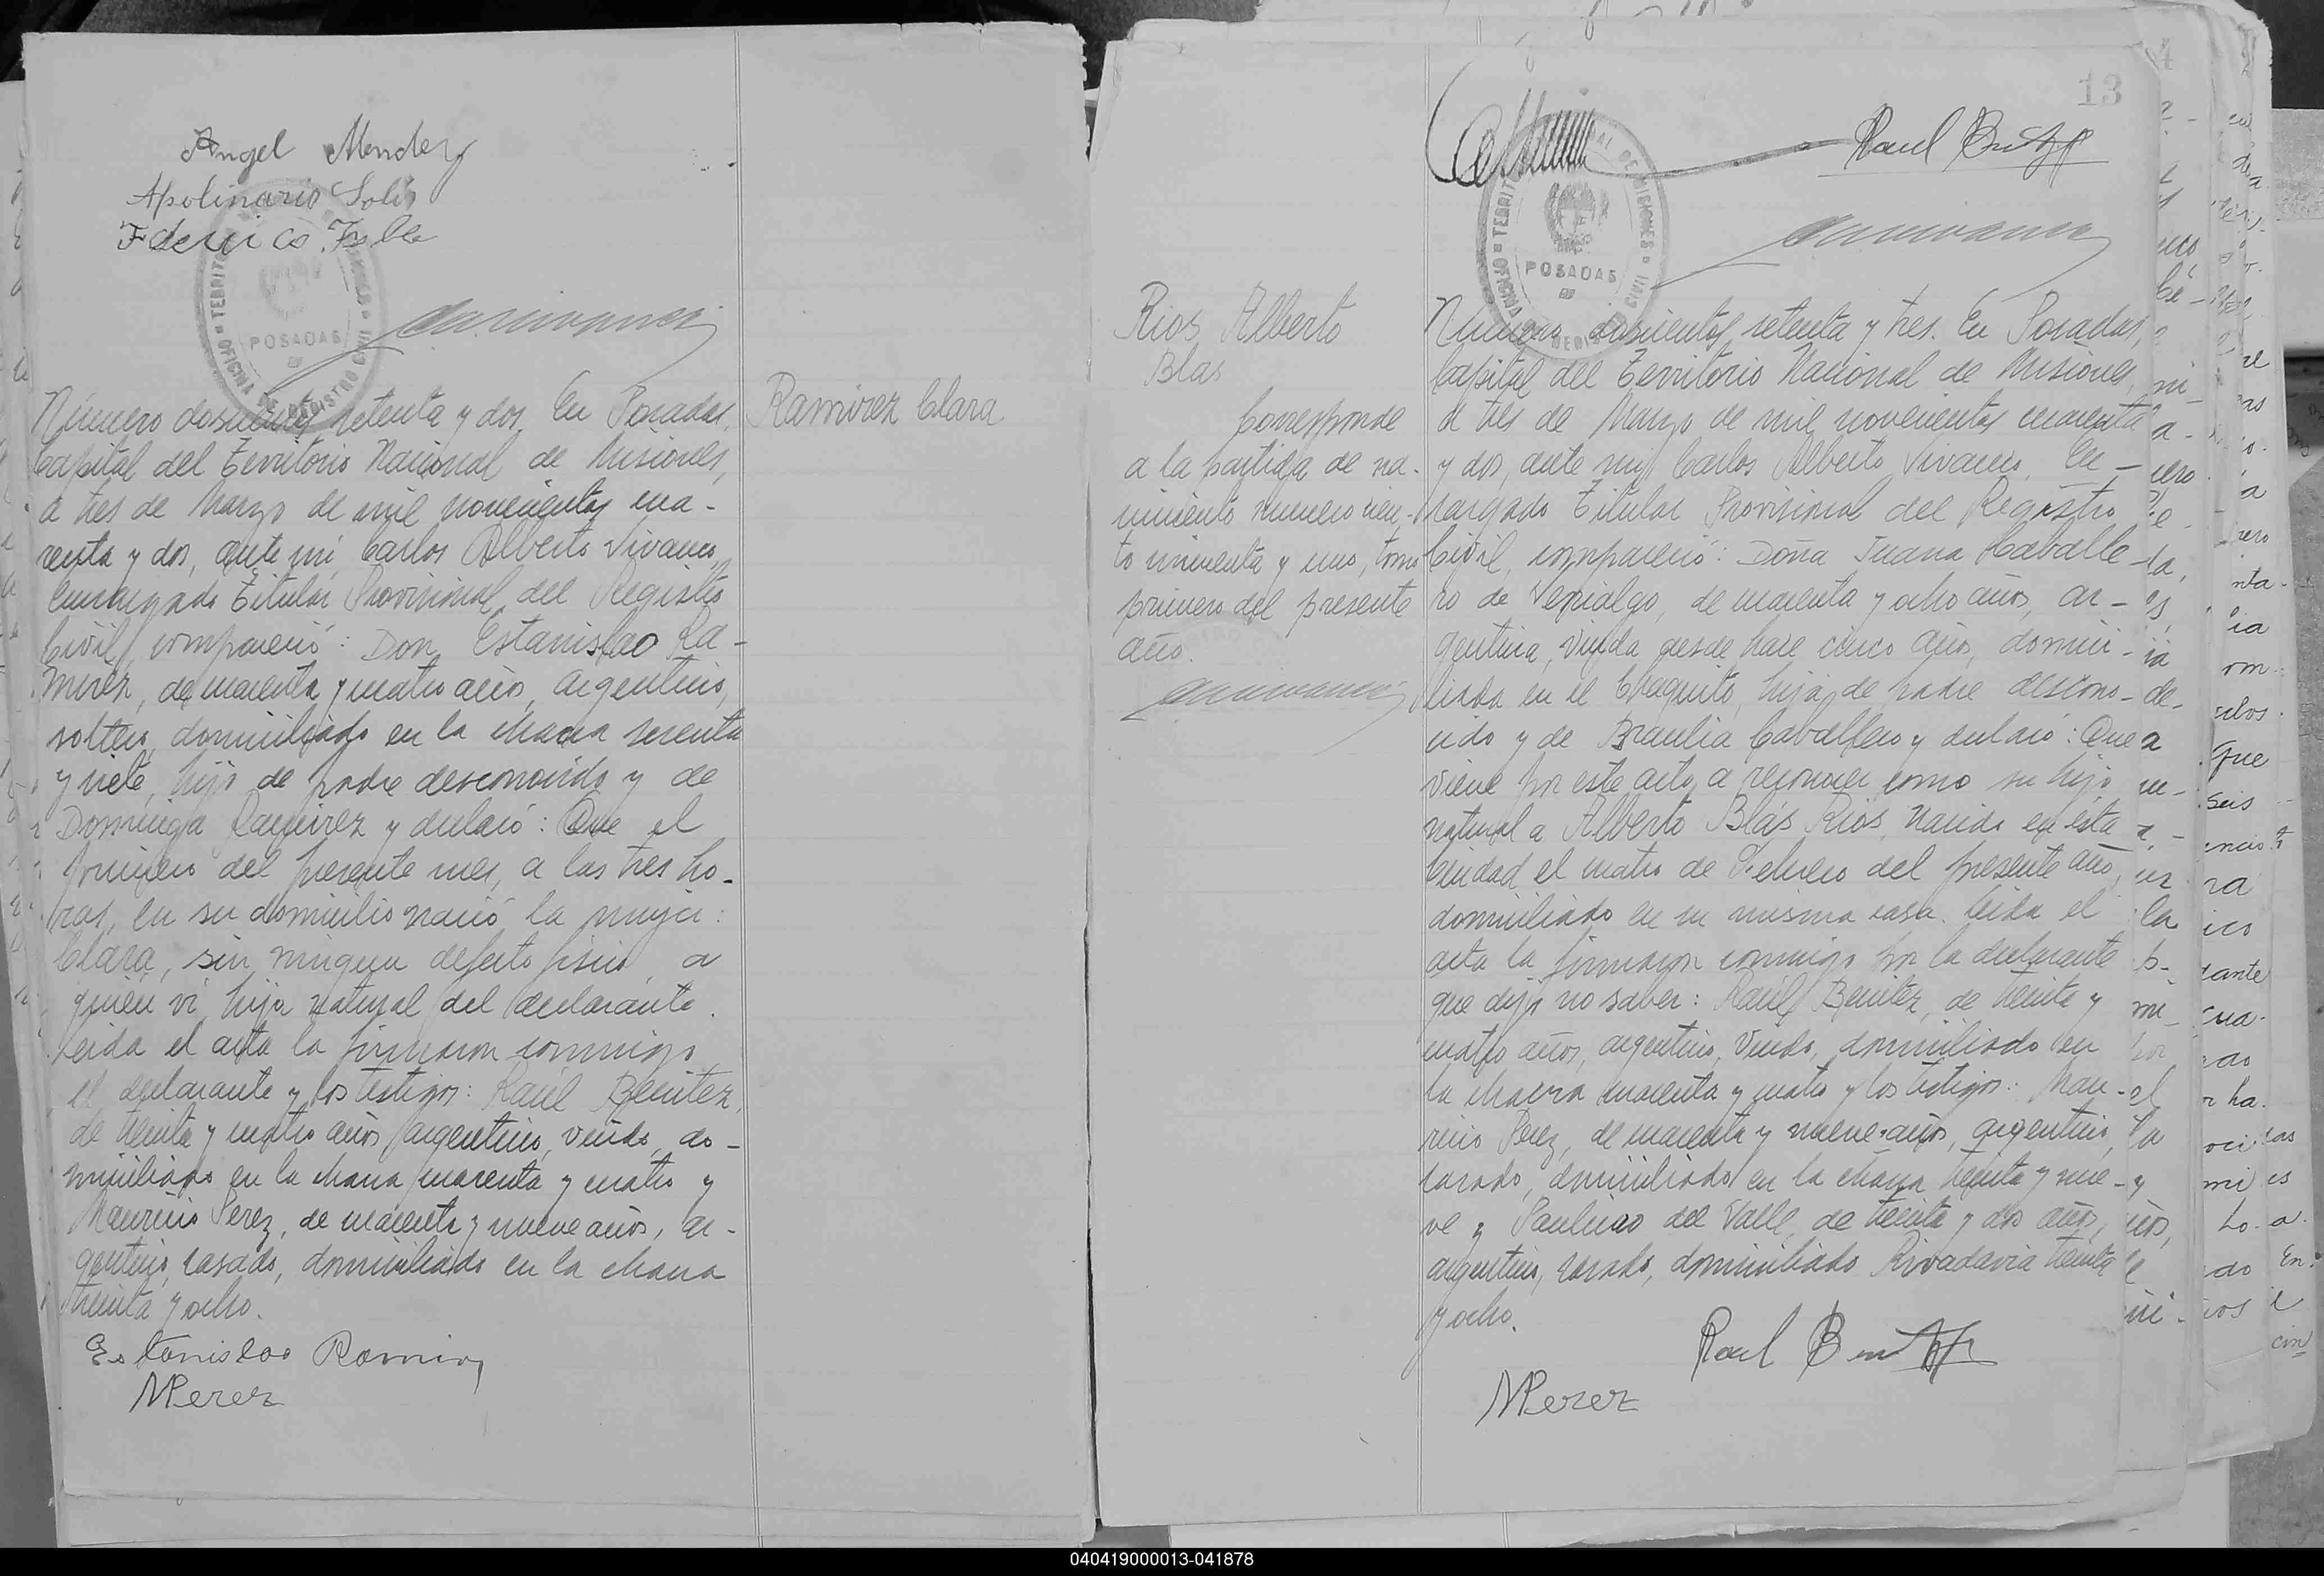 Angel Mendez
Apolinario Solis
Federico
POSADAS
Número doscientos setenta y dos. En Posadas,
Capital del Territorio Nacional de Misiones,
a tres de Marzo de mil novecientos cua-
renta y dos, ante mí Carlos Alberto Vivanco,
Encargado Titular Provisional del Registro
Civil, compareció: Don Estanislao Ra-
mirez, de cuarenta y cuatro años, argentino,
soltero, domiciliado en la chacra sesenta
y siete, hijo de padre desconocido y de
Dominga Ramirez y declaró: Que el
primero del presente mes, a las tres ho-
ras, en su domicilio nació la mujer:
Clara, sin ningun defecto fisico, a
quién ví, hija natural del declarante.
Leida el acta la firmaron conmigo
el declarante y los testigos: Raúl Benitez,
de treinta y cuatro años, argentino, viudo, do-
miciliado en la chacra cuarenta y cuatro y
Mauricio Perez, de cuarenta y nueve años, ar-
gentino, casado, domiciliado en la chacra
treinta y ocho.
Estanislao Ramirez
MPerez
Ramirez Clara
13
Raul Benitez
TERRITORIO NACIONAL DE MISIONES
POSADAS
OFICINA DE REGISTRO CIVIL
Rios Alberto
Blas
Corresponde
a la partida de na-
cimiento numero cien-
to cincuenta y uno, tomo
primero del presente
año.
Número doscientos setenta y tres. En Posadas,
Capital del Territorio Nacional de Misiones,
a tres de Marzo de mil novecientos cuarenta
y dos, ante mí Carlos Alberto Vivanco, En-
cargado Titular Provisional del Registro
Civil, compareció: Doña Juana Caballe
ro de Verialgo, de cuarenta y ocho años, ar-
gentina, viuda desde hace cinco años, domici-
liada en el Chaquito, hija de padre descono-
cido y de Braulia Caballero y declaró: Que
viene por este acto a reconocer como su hijo
natural a Alberto Blás Rios, nacido en ésta
Ciudad el cuatro de Febrero del presente año,
domiciliado en su misma casa. Leida el
acta la firmaron conmigo por la declarante
que dijo no saber: Raúl Benitez, de treinta y
cuatro años, argentino, viudo, domiciliado en
la chacra cuarenta y cuatro y los testigos: Mau-
ricio Perez, de cuarenta y nueve años, argentino,
casado, domiciliado en la chacra treinta y nue-
ve y Paulino del Valle, de treinta y dos años,
argentino, casado, domiciliado Rivadavia treinta
y ocho.
Raul Benitez
MPerez
040419000013-041878